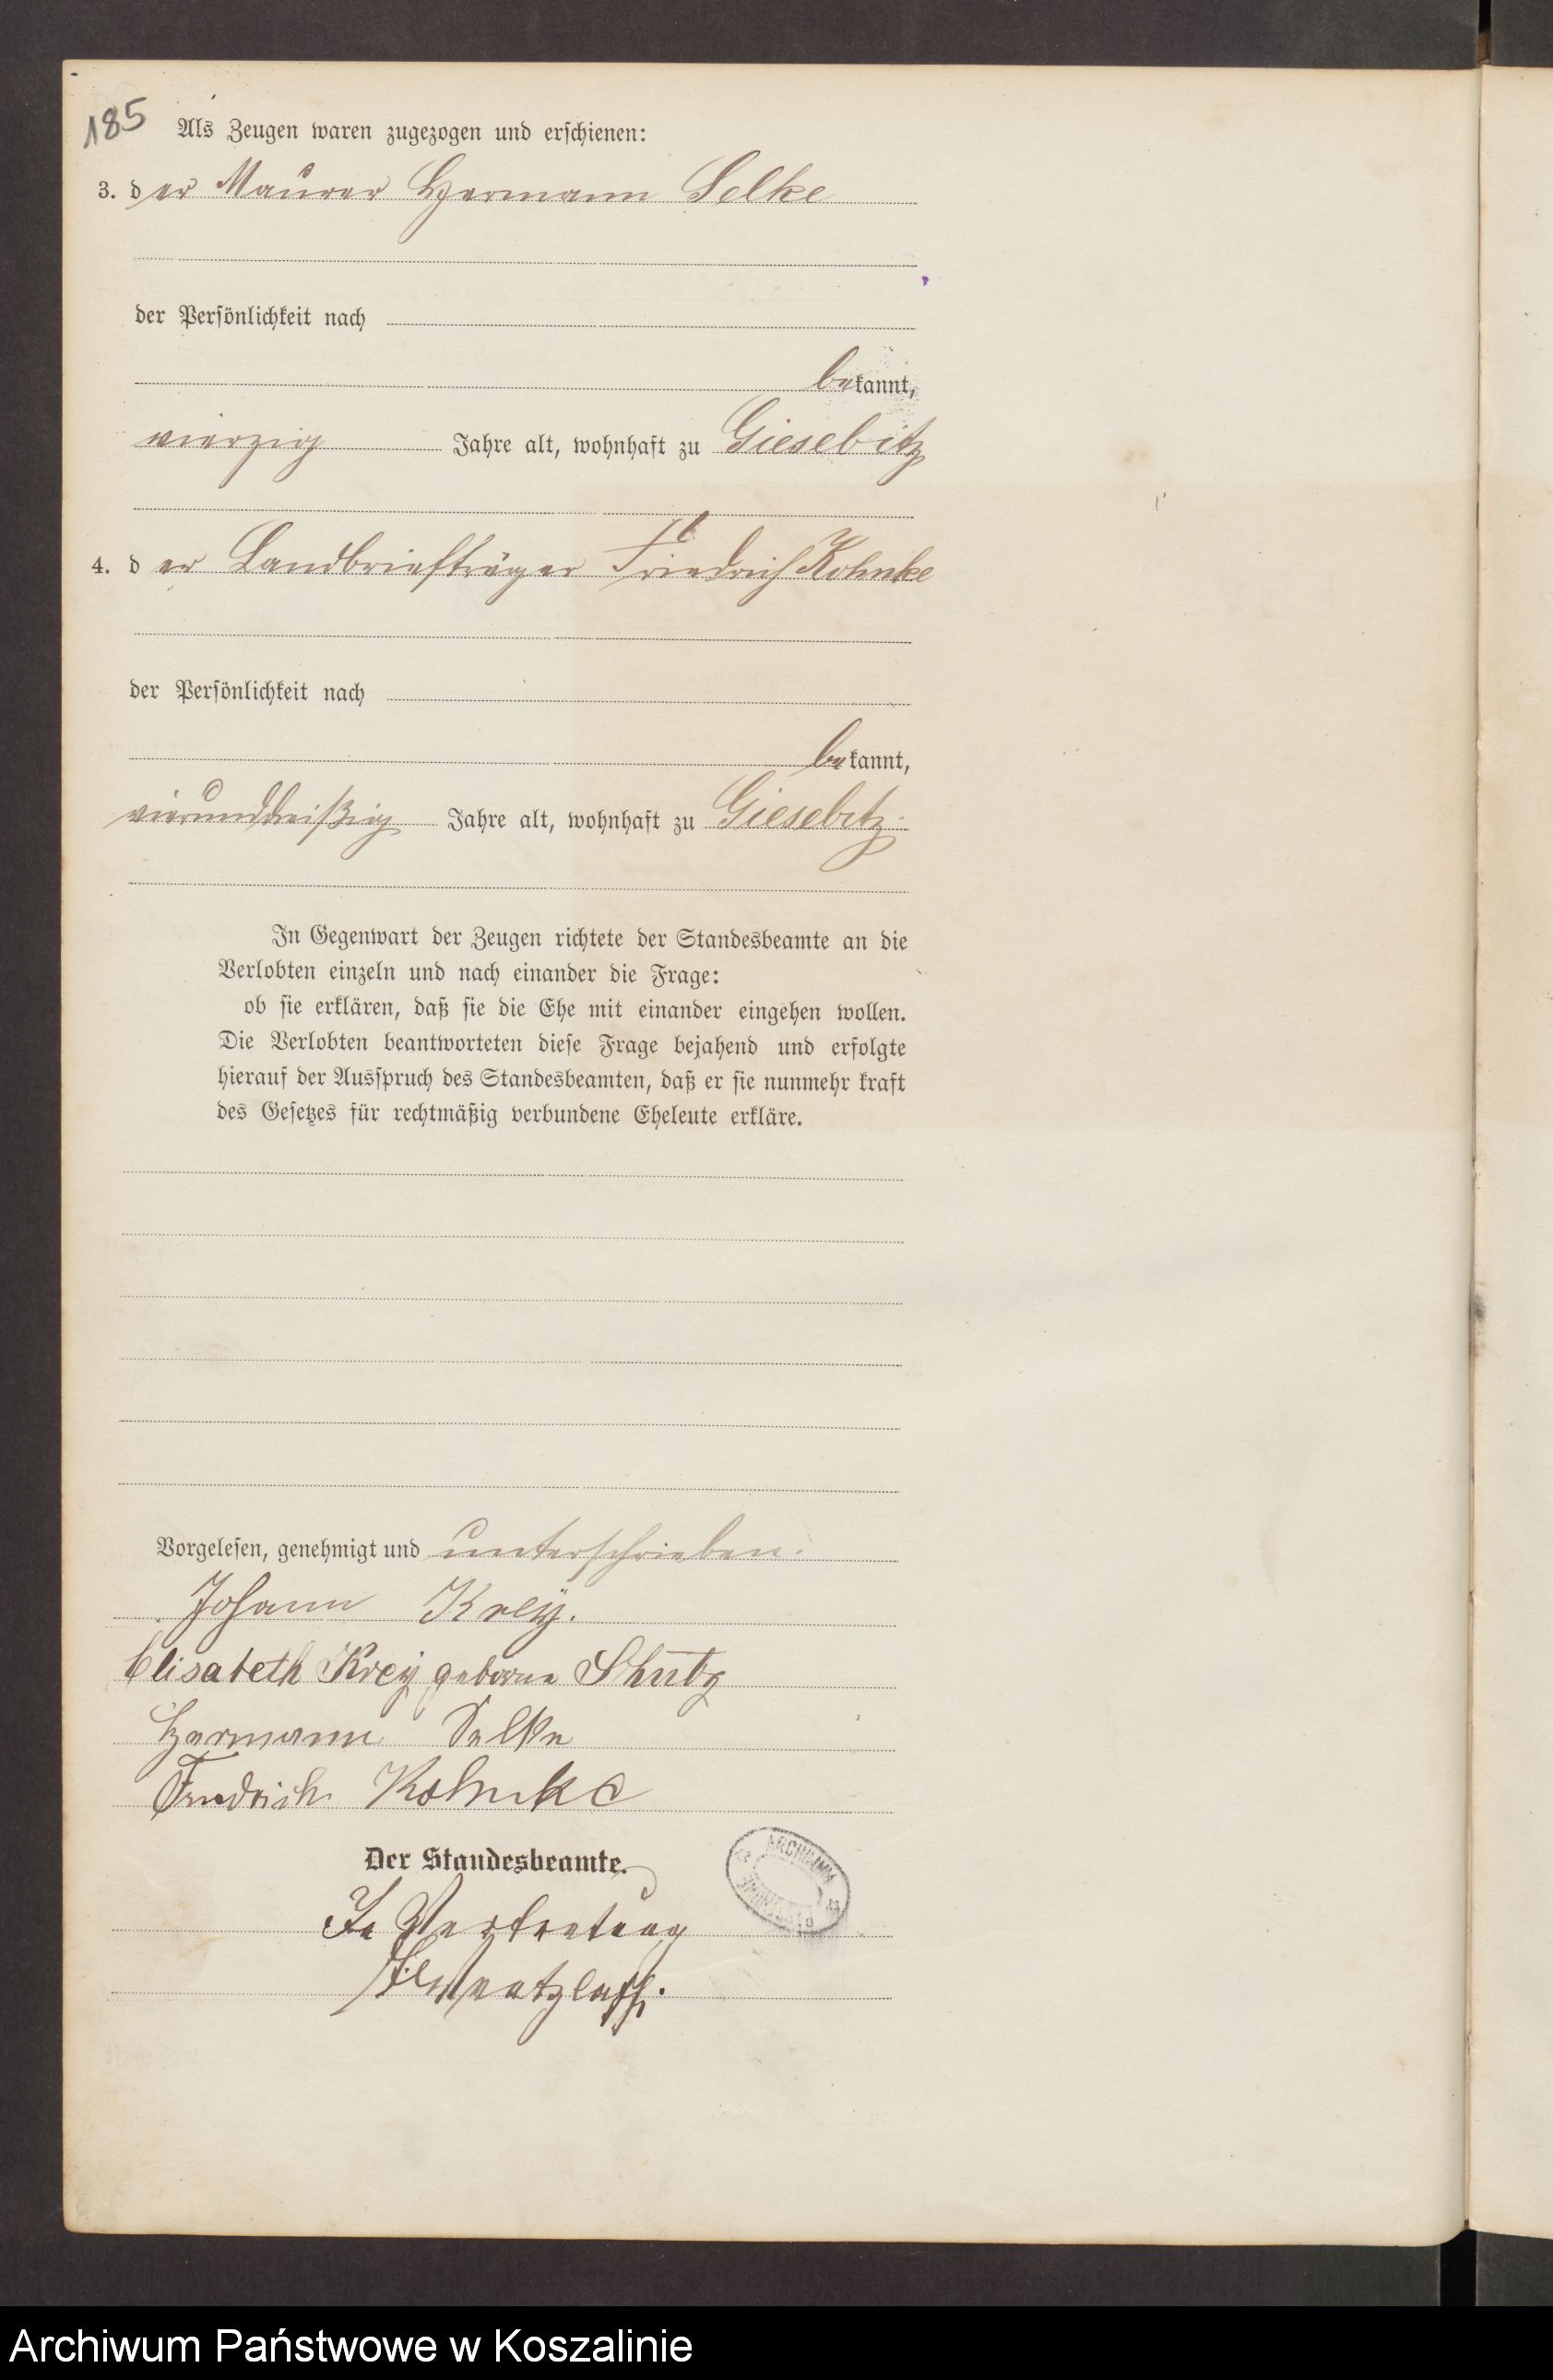 185
Als Zeugen waren zugezogen und erschienen:
3. der Maurer Hermann Selke
der Persönlichkeit nach
bekannt,
vierzig Jahre alt, wohnhaft zu Giesebitz
4. der Landbriefträger Friedrich Kohnke
der Persönlichkeit nach
bekannt,
vierunddreißig Jahre alt, wohnhaft zu Giesebitz
In Gegenwart der Zeugen richtete der Standesbeamte an die
Verlobten einzeln und nach einander die Frage:
ob sie erklären, daß sie die Ehe mit einander eingehen wollen.
Die Verlobten beantworteten diese Frage bejahend und erfolgte
hierauf der Ausspruch des Standesbeamten, daß er sie nunmehr kraft
des Gesetzes für rechtmäßig verbundene Eheleute erkläre.
Vorgelesen, genehmigt und unterschrieben.
Johann Kreÿ.
Elisabeth Kreÿ geborne
Hermann Selke
Friedrich Kohnke
Der Standesbeamte.
In Vertretung
Archiwum Państwowe w Koszalinie